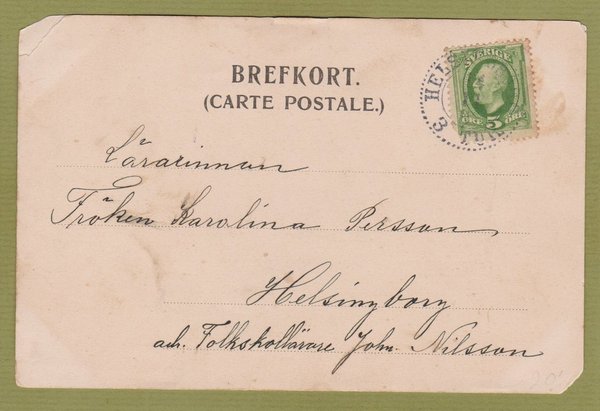 BREFKORT.
(CARTE POSTALE.)
SVERIGE
5
ÖRE ÖRE
HELS
3
Lärarinnan
Fröken Karolina Persson
Helsingborg
adr. Folkskollärare John. Nilsson